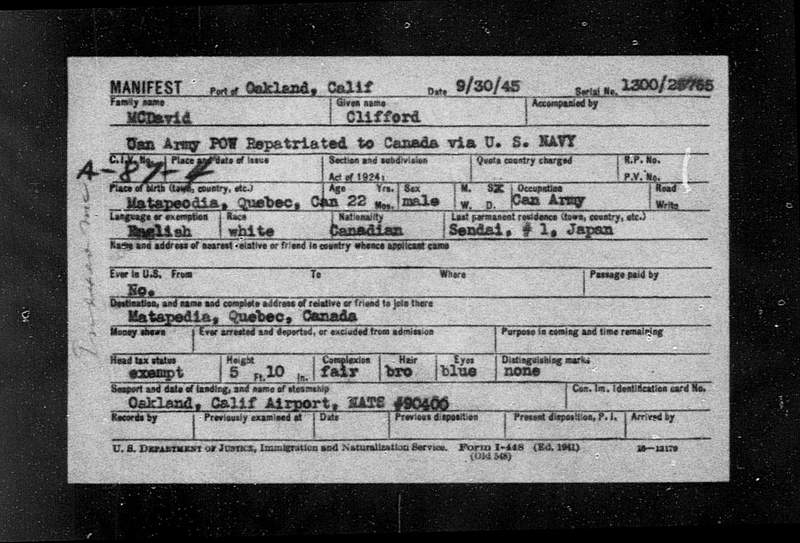 MANIFEST Port of Oakland, Calif Date 9/30/45 Serial No. 1300/25765
Family name Given name Accompanied by
MCDavid Clifford
Can Army POW Repatriated to Canada via U. S. NAVY
C.I.V. No. Place and date of issue Section and subdivision Quota country charged R.P. No.
A-87-4 Act of 1924: P.V. No.
Place of birth (town, country, etc.) Age Yrs. Sex M. S. Occupation Read
Matapeodia, Quebec, Can 22 Mos. male W. D. Can Army Write
Language or exemption Race Nationality Last permanent residence (town, country, etc.)
English white Canadian Sendai, # 1, Japan
Name and address of nearest relative or friend in country whence applicant came
Ever in U.S. From To Where Passage paid by
No.
Destination, and name and complete address of relative or friend to join there
Matapedia, Quebec, Canada
Money shown Ever arrested and deported, or excluded from admission Purpose in coming and time remaining
Head tax status Height Complexion Hair Eyes Distinguishing marks
exempt 5 Ft. 10 In. fair bro blue none
Seaport and date of landing, and name of steamship Con. Im. Identification card No.
Oakland, Calif Airport, NATS #90406
Records by Previously examined at Date Previous disposition Present disposition, P. I. Arrived by
U. S. DEPARTMENT OF JUSTICE, Immigration and Naturalization Service. Form I-448 (Ed. 1941) 16—13179
(Old 548)